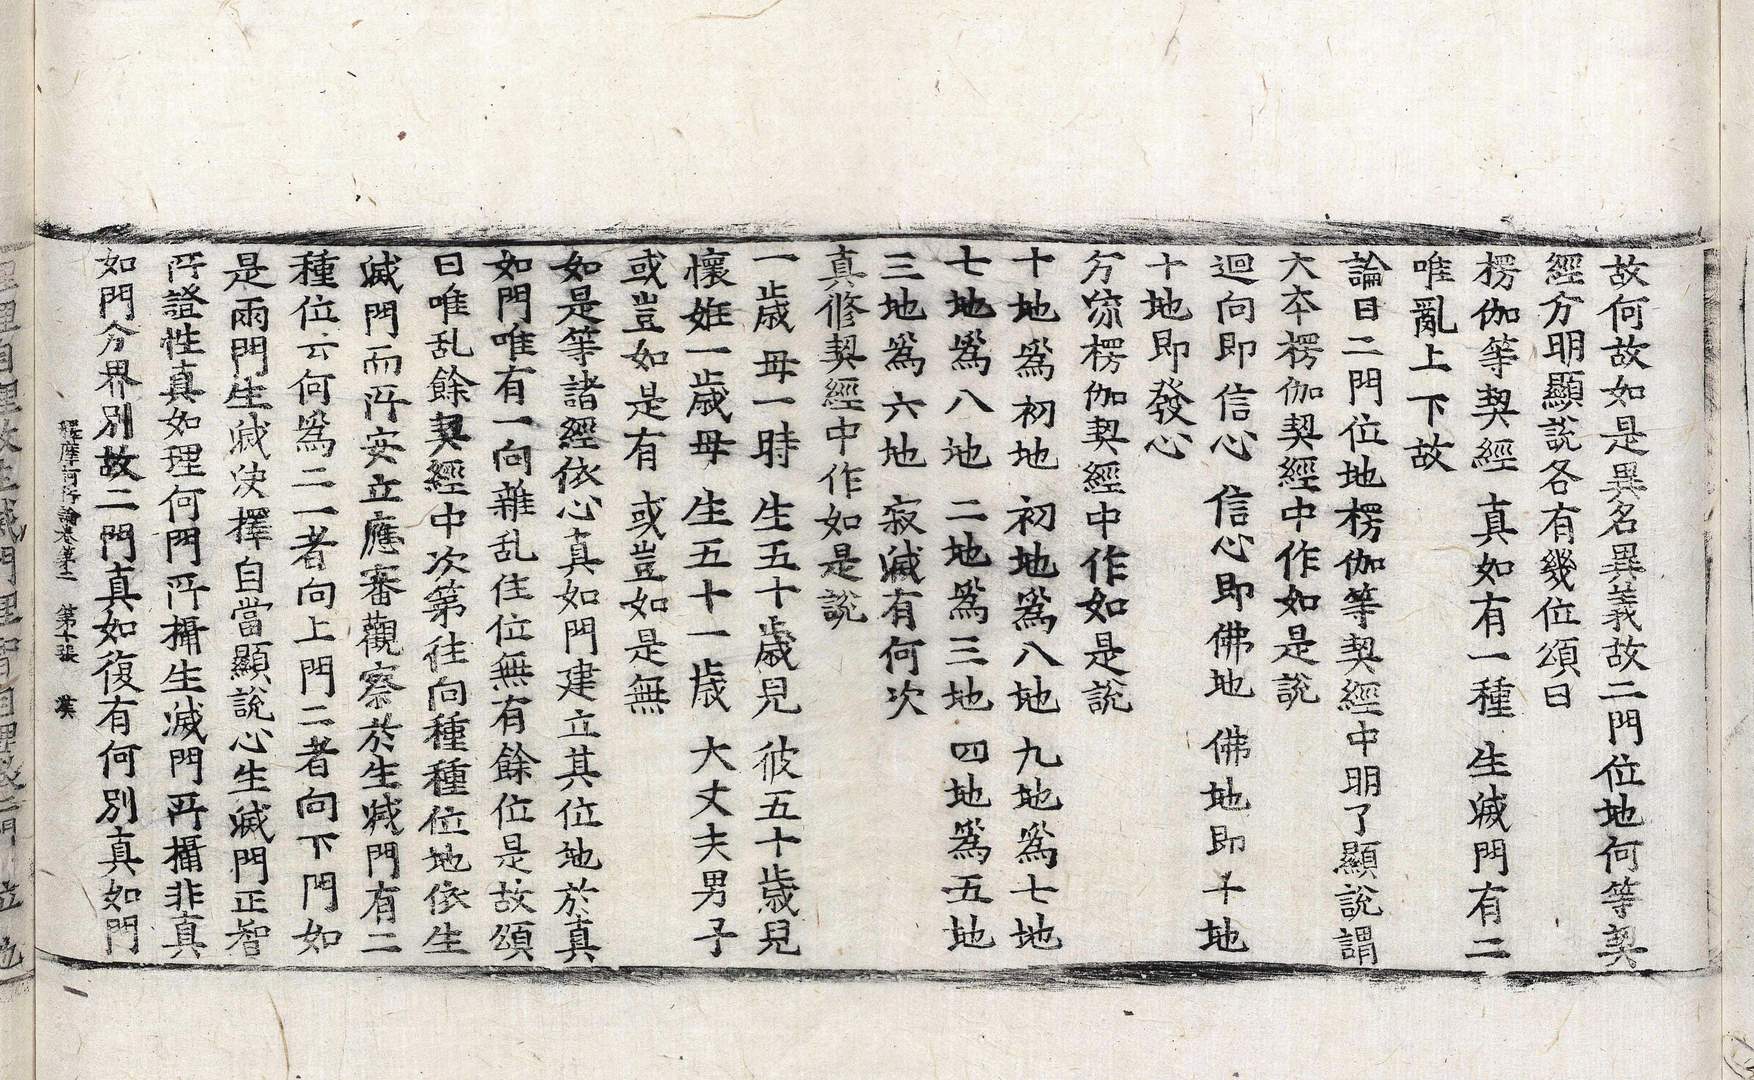 故何故如是異名異義故二門位地何等契
經分明顯説各有幾位頌曰
楞伽等契經　真如有一種　生滅門有二
唯亂上下故
論曰二門位地楞伽等契經中明了顯説謂
大本楞伽契經中作如是説
迴向即信心　信心即佛地　佛地即十地
十地即發心
分流楞伽契經中作如是説
十地爲初地　初地爲八地　九地爲七地
七地爲八地　二地爲三地　四地爲五地
三地爲六地　寂滅有何次
真修契經中作如是説
一歳母一時　生五十歳兒　彼五十歳兒
懷姙一歳母　生五十一歳　大丈夫男子
或豈如是有　或豈如是無
如是等諸經依心真如門建立其位地於真
如門唯有一向雜乱住位無有餘位是故頌
曰唯乱餘契經中次第往向種種位地依生
滅門而所安立應審觀察於生滅門有二
種位云何爲二一者向上門二者向下門如
是兩門生滅决擇自當顯説心生滅門正智
所證性真如理何門所攝生滅門所攝非真
如門分界別故二門真如復有何別真如門
釋摩訶衍論卷第二　第十張　漢